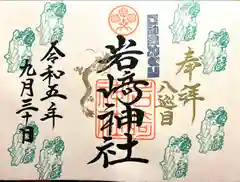 奉拝
八巡目
岩崎神社
令和五年
九月三十日